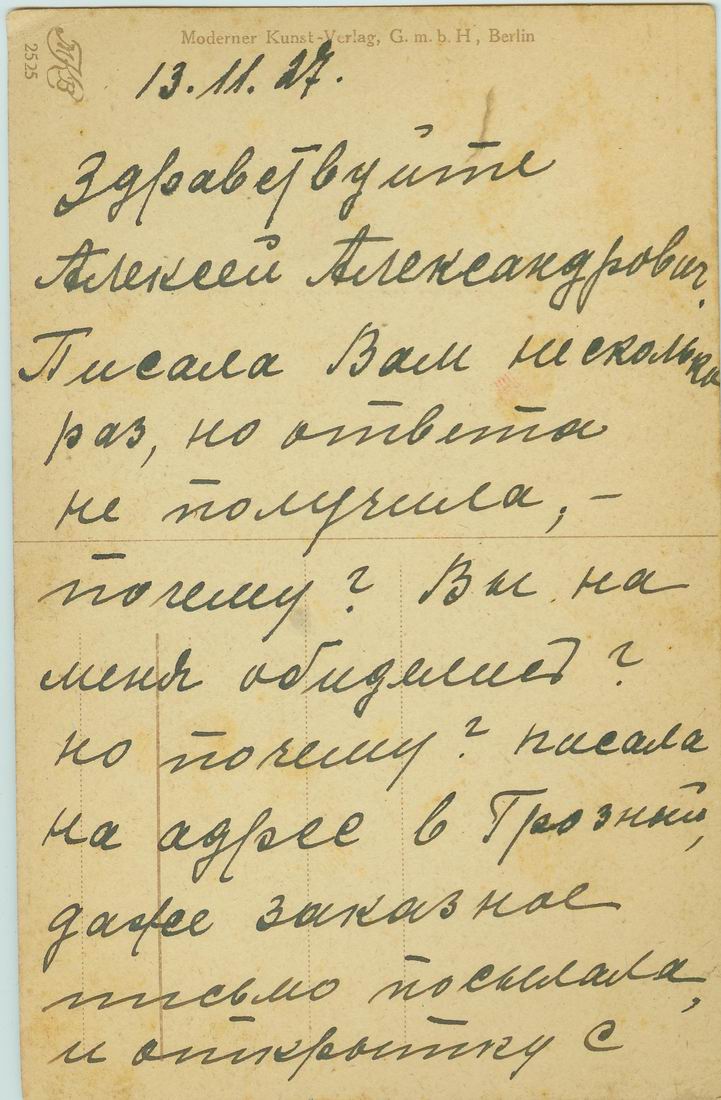 Moderner Kunst-Verlag, G. m. b. H, Berlin
2525
13.11.27.
Здравствуйте
Алексей Александрович.
Писала Вам несколько
раз, но ответа
не получила, –
почему? Вы на
меня обиделись?
но почему? писала
на адрес в Грозный,
даже заказное
письмо посылала,
и открытку с